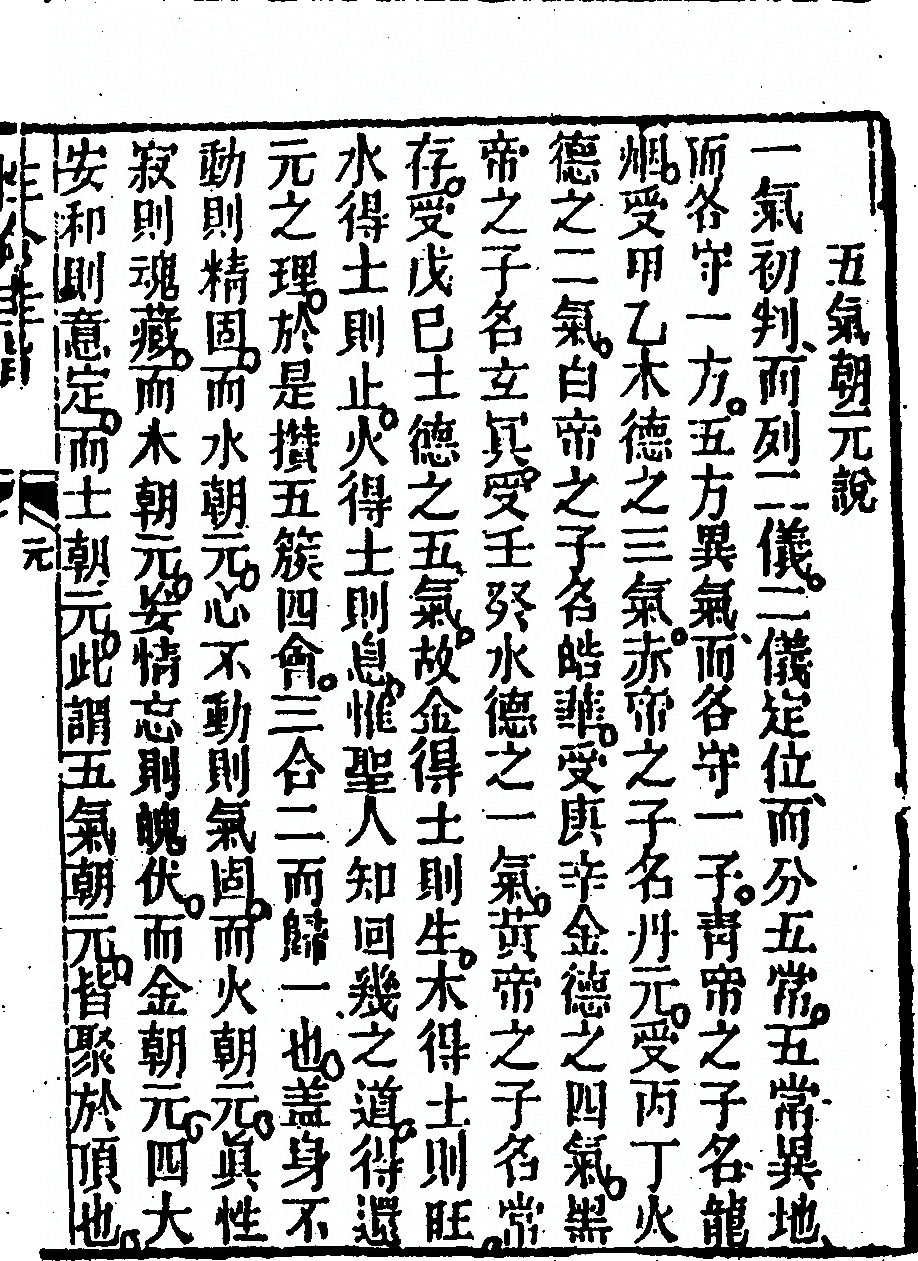 五氣朝元說
一氣初判、而列二儀。二儀定位、而分五常。五常異地、
而各守一方。五方異氣、而各守一子。青帝之子名龍
烟。受甲乙木德之三氣。赤帝之子名丹元。受丙丁火
德之二氣。白帝之子名皓華。受庚辛金德之四氣。黑
帝之子名玄冥。受壬癸水德之一氣。黃帝之子名常
存。受戊巳土德之五氣。故金得土則生。木得土則旺
水得土則止。火得土則息。惟聖人知回幾之道。得還
元之理。於是攅五簇四會。三合二而歸一也。盖身不
動則精固。而水朝元。心不動則氣固。而火朝元。眞性
寂則魂藏。而木朝元。妄情忘則魄伏。而金朝元。四大
安和則意定。而土朝元。此謂五氣朝元。皆聚於頂也。
性命圭旨
元